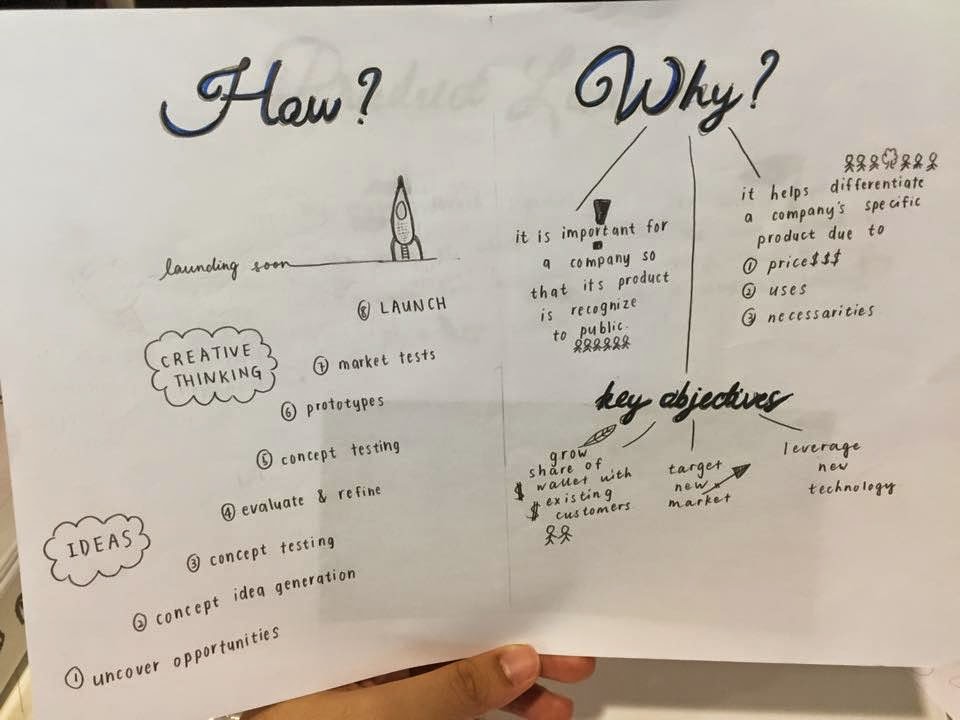 How?
launding soon
⑧ LAUNCH
CREATIVE
THINKING
⑦ market tests
⑥ prototypes
⑤ concept testing
④ evaluate & refine
IDEAS
③ concept testing
② concept idea generation
① uncover opportunities
Why?
it is important for
a company so
that its product
is recognize
to public.
it helps differentiate
a company's specific
product due to
① price$$$
② uses
③ necessarities
key objectives
grow
share of
$ wallet with
$ existing
customers
target
new
market
leverage
new
technology